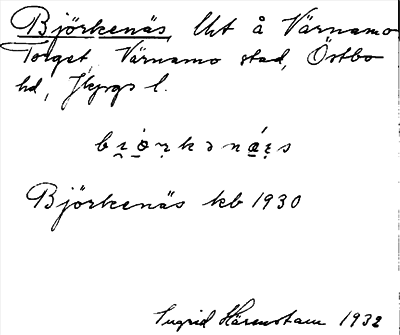 Björkenäs, lht å Värnamo
Torget Värnamo stad, Östbo
hd, Jkpgs l.
Björkenäs kb 1930
Ingrid Härenstam 1932